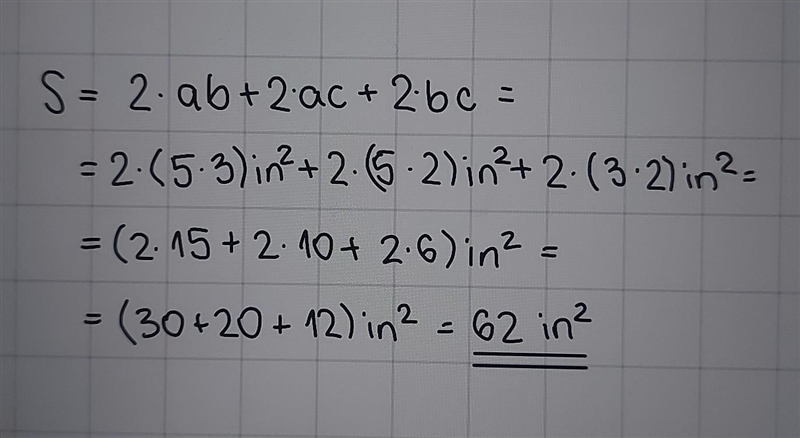 S = 2·ab+2·ac+2·bc =
= 2·(5·3)in²+2·(5·2)in²+2·(3·2)in²=
= (2·15+2·10+2·6)in² =
= (30+20+12)in² = 62 in²